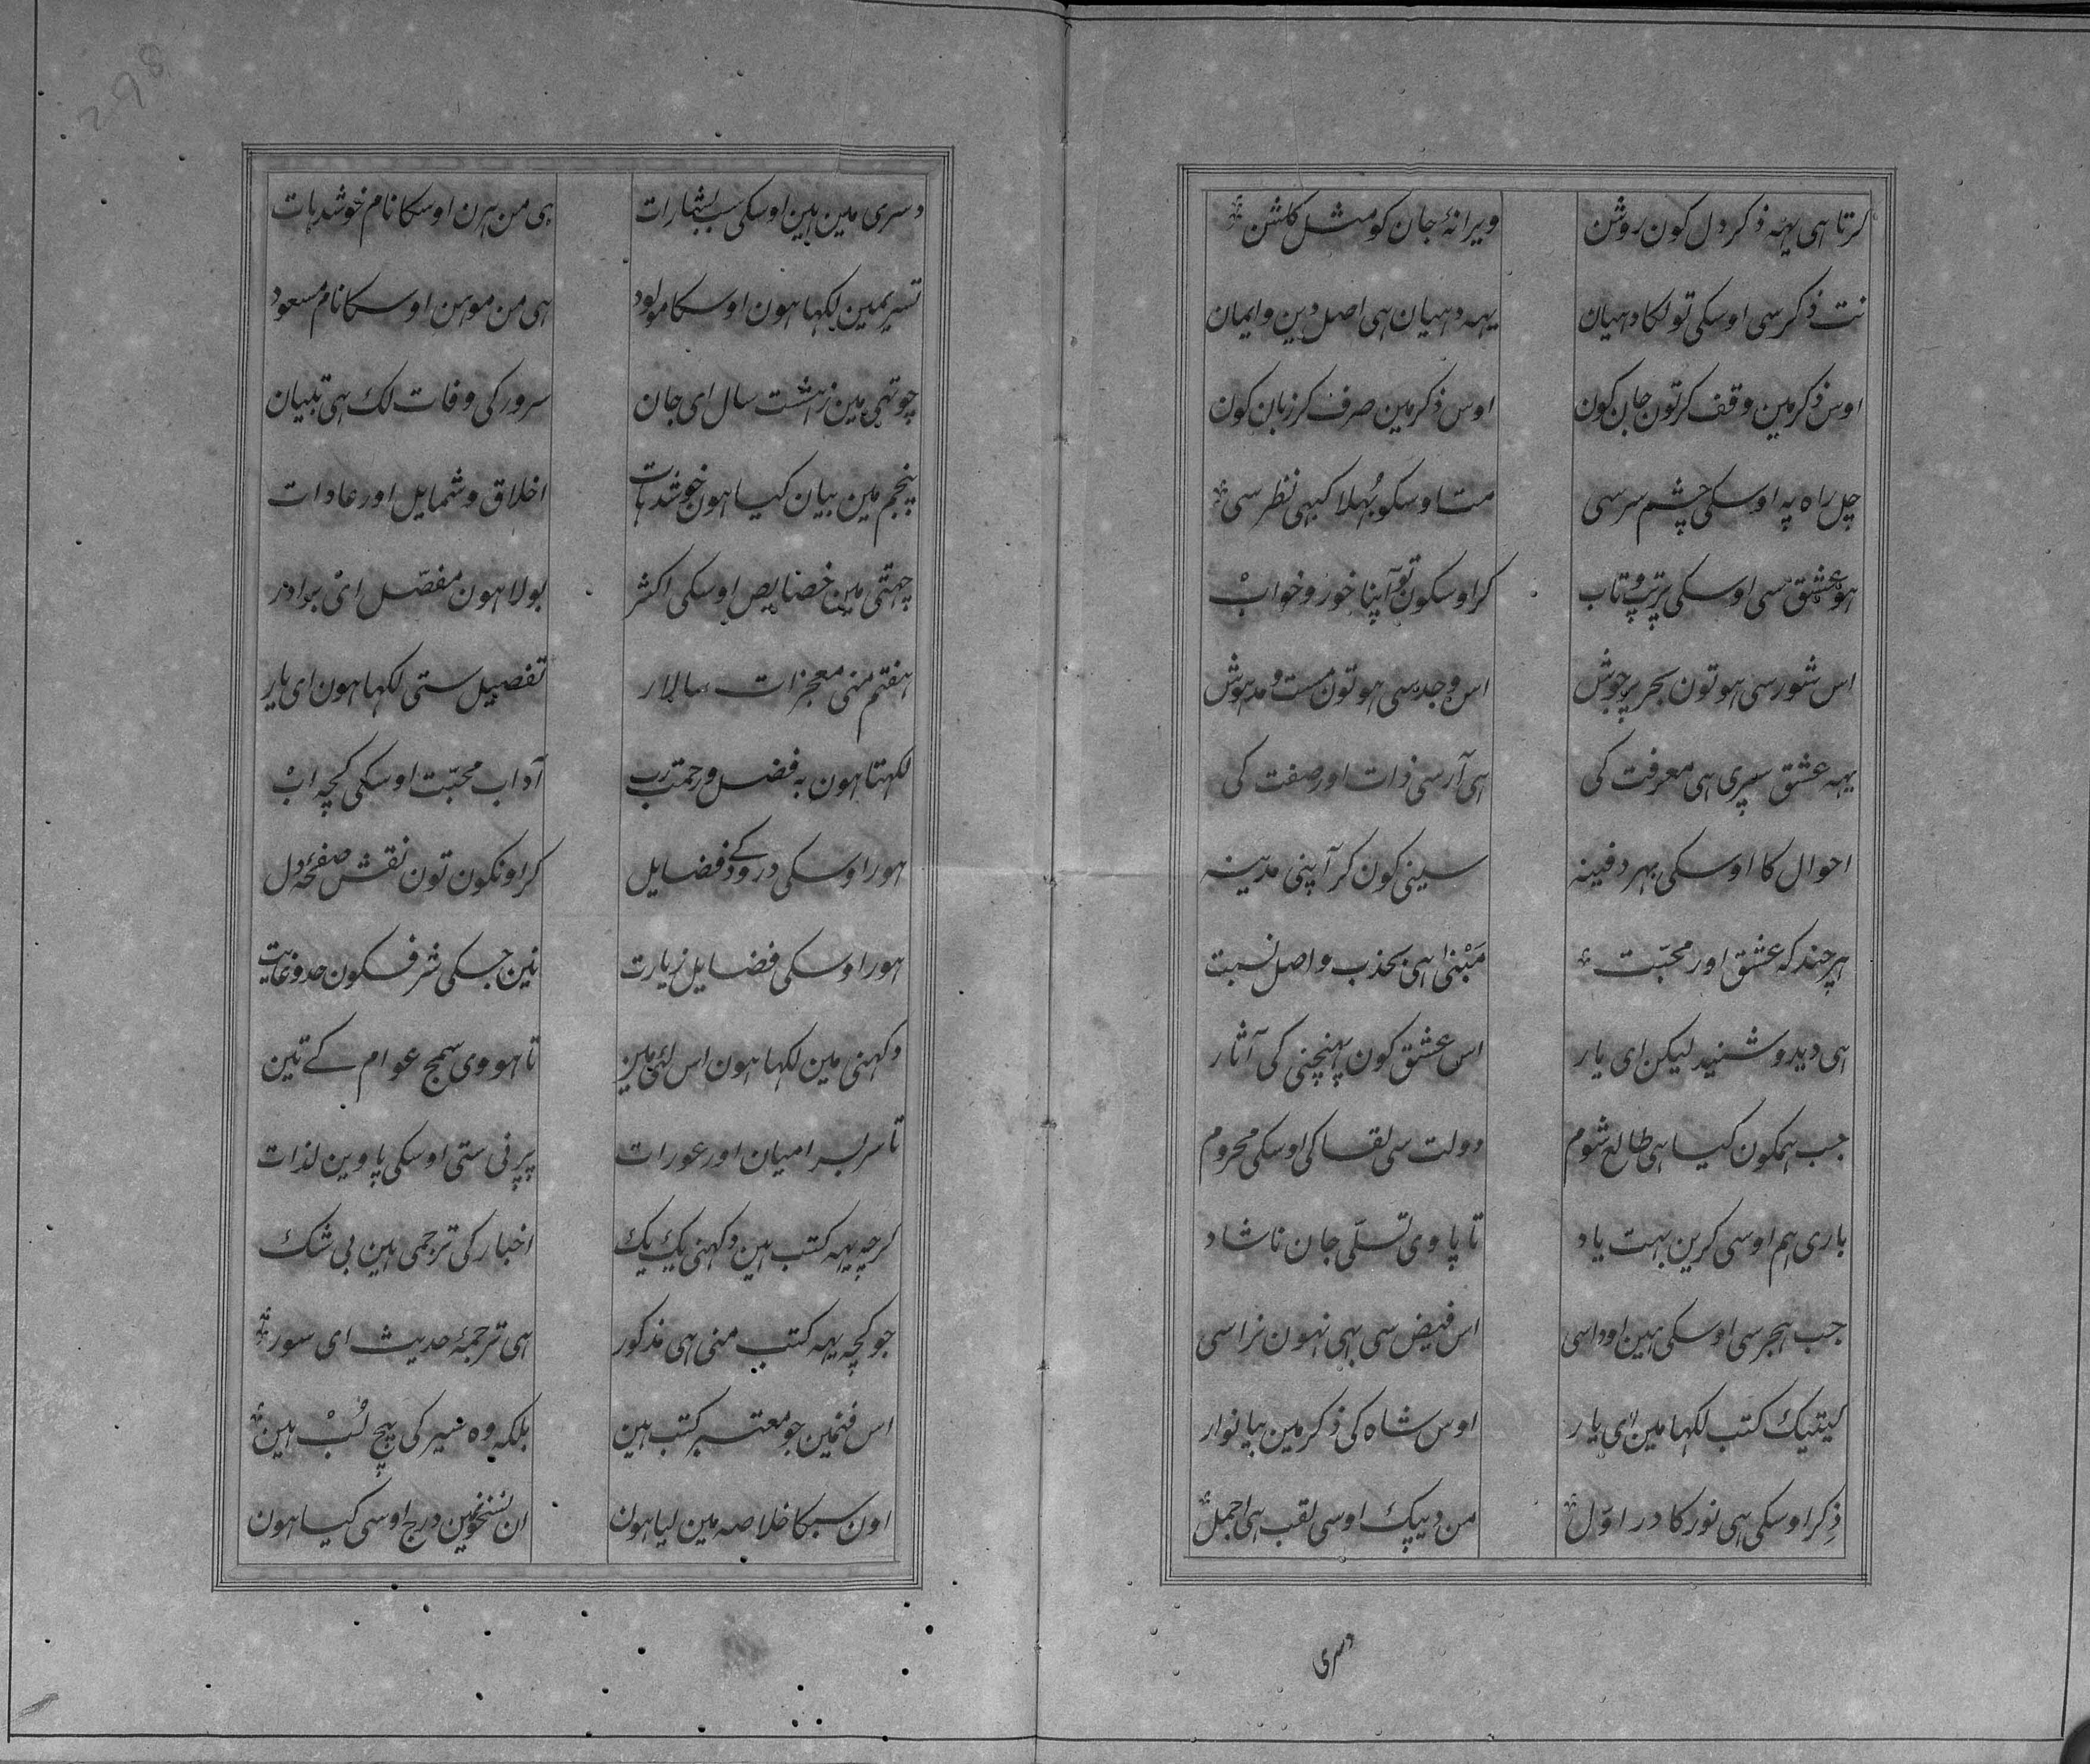 کرتا ہی یہہ ذکر دل کون روشن ویرانۂ جان کو مثل کلشن
نت ذکر سی اوسکی تو لکا دہیان یہہ دہیان ہی اصل دین و ایمان
اوس ذکر مین وقف کر تون جان کون اوس ذکر مین صرف کر زبان کون
چل راہ پہ اوسکی چشم سر سی مت اوسکو بُہلا کبہی نظر سی
ہو عشق سی اوسکی پر تب و تاب کر اوسکون تو آپنا خور و خوابْ
اس شور سی ہو تون بحر پر جوش اس وجد سی ہو تون مست و مدہوش
یہہ عشق سیری ہی معرفت کی ہی آرسی ذات اور صفت کی
احوال کا اوسکی بہر دفینہ سینی کون کر آپنی مدینہ
ہر چند کہ عشق اور محبّت مَبْنٰی ہی بجذب و اصل نسبت
ہی دید و شنید لیکن ای یار اس عشق کون پہنچنی کی آثار
جب ہمکون کیا ہی طالع شوم دولت سی لقا کی اوسکی محروم
باری ہم اوسی کرین بہت یاد تا پاوی تسلّی جان ناشاد
جب ہجر سی اوسکی ہین اوداسی اس فیض سی بہی نہون نراسی
کیتیک کتب لکہا مین ای یار اوس شاہ کی ذکر مین پیانوار
ذِکر اوسکی ہی نور کا در اوّل من دیپک اوسی لقب ہی اجمل
دسری
دسری مین ہین اوسکی سب بشارات ہی من ہرن اوسکا نام خوشدہات
تسریمین لکہا ہون اوسکا مولود ہی من موہن اوسکا نام مسعود
چوتہی مین ز ہشت سال ای جان سرور کی وفات لک ہی تبیان
پنجم مین بیان کیا ہون خوشدہات اخلاق و شمایل اور عادات
چہتی مین خصایص اوسکی اکثر بولا ہون مفصّل ای برادر
ہفتم منی معجزات سالار تفصیل ستی لکہا ہون ای یار
لکہتا ہون بہ فضل و رحمت رب آداب محبّت اوسکی کچہ ابْ
ہور اوسکی درود کے فضایل کر اونکون تون نقش صفحۂ دل
ہور اوسکی فضایل زیارت نین جسکی شرفکون حد و غایت
دکہنی مین لکہا ہون اس لئی مین تا ہووی سمج عوام کے تین
تا سربسر امیان اور عورات پرنی ستی اوسکی پاوین لذات
کرچہ یہہ کتب ہین دکہنی یک یک اخبار کی ترجمی ہین بی شک
جو کچہ یہہ کتب منی ہی مذکور ہی ترجمۂ حدیث ای سور
اس فنمین جو معتبر کتب ہین بلکہ وہ سیر کی بیچ لُبْ ہین
اون سبکا خلاصہ مین لیا ہون ان نسخونمین درج اوسی کیا ہون